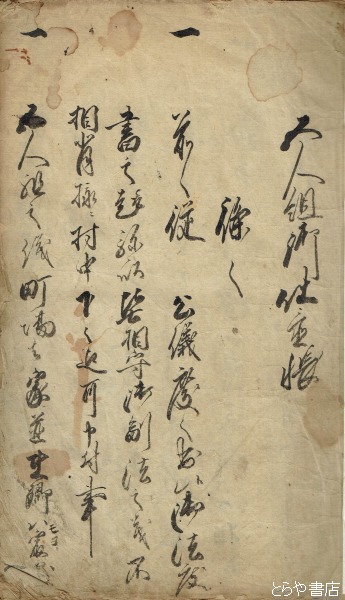 五人組御仕置帳
條々
一 前々従 公儀度々被 仰出候御法度
書之趣弥以堅相守御制法之儀不
相背様ニ村中下々迄可申付事
一 五人組之儀町場ハ家並在郷ハ最寄
とらや書店